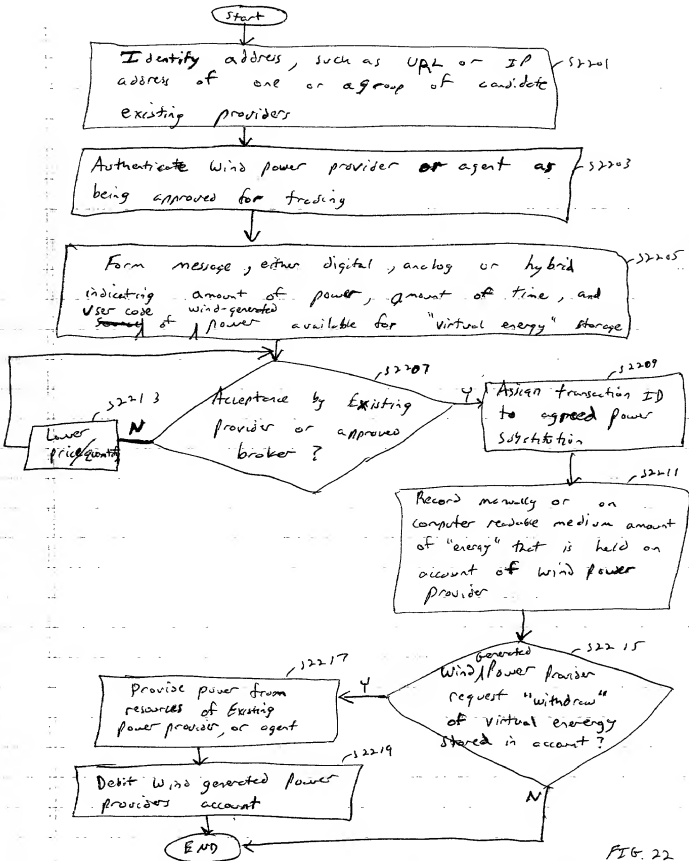 Start
Identify address, such as URL or IP
address of one or a group of candidate
existing providers
S2201
Authenticate Wind power provider or agent as
being approved for trading
S2203
Form message, either digital, analog or hybrid
indicating amount of power, amount of time, and
User code wind-generated
of power available for "virtual energy" storage
S2205
S2207
Acceptance by Existing
Provider or approved
broker ?
Y
N
S2213
Lower
price/quantity
S2209
Assign transaction ID
to agreed power
substitution
S2211
Record manually or on
computer readable medium amount
of "energy" that is held on
account of wind power
Provider
S2215
generated
Wind Power Provider
request "withdraw"
of virtual enerergy
stored in account ?
Y
N
S2217
Provide power from
resources of Existing
power provider, or agent
S2219
Debit Wind generated power
providers account
END
FIG. 22